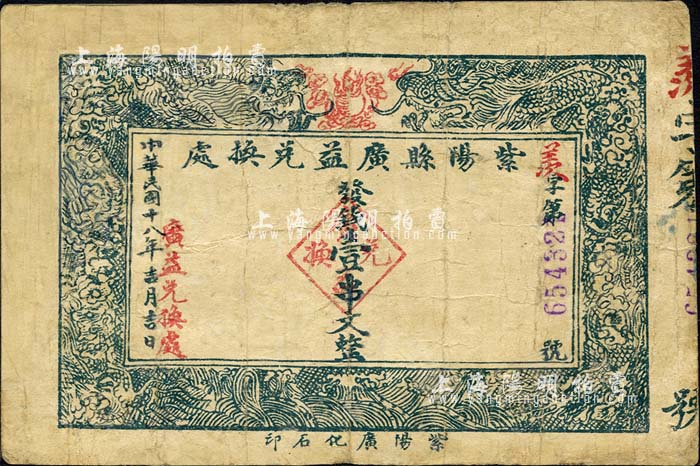 紫陽縣廣益兌換處
羨字第65432號
發錢壹串文整
兌換
中華民國十八年吉月吉日
廣益兌換處
紫陽廣化石印
號
上海陽明拍賣
www.yangmingauction.com
上海陽明拍賣
www.yangmingauction.com
上海陽明拍賣
www.yangmingauction.com